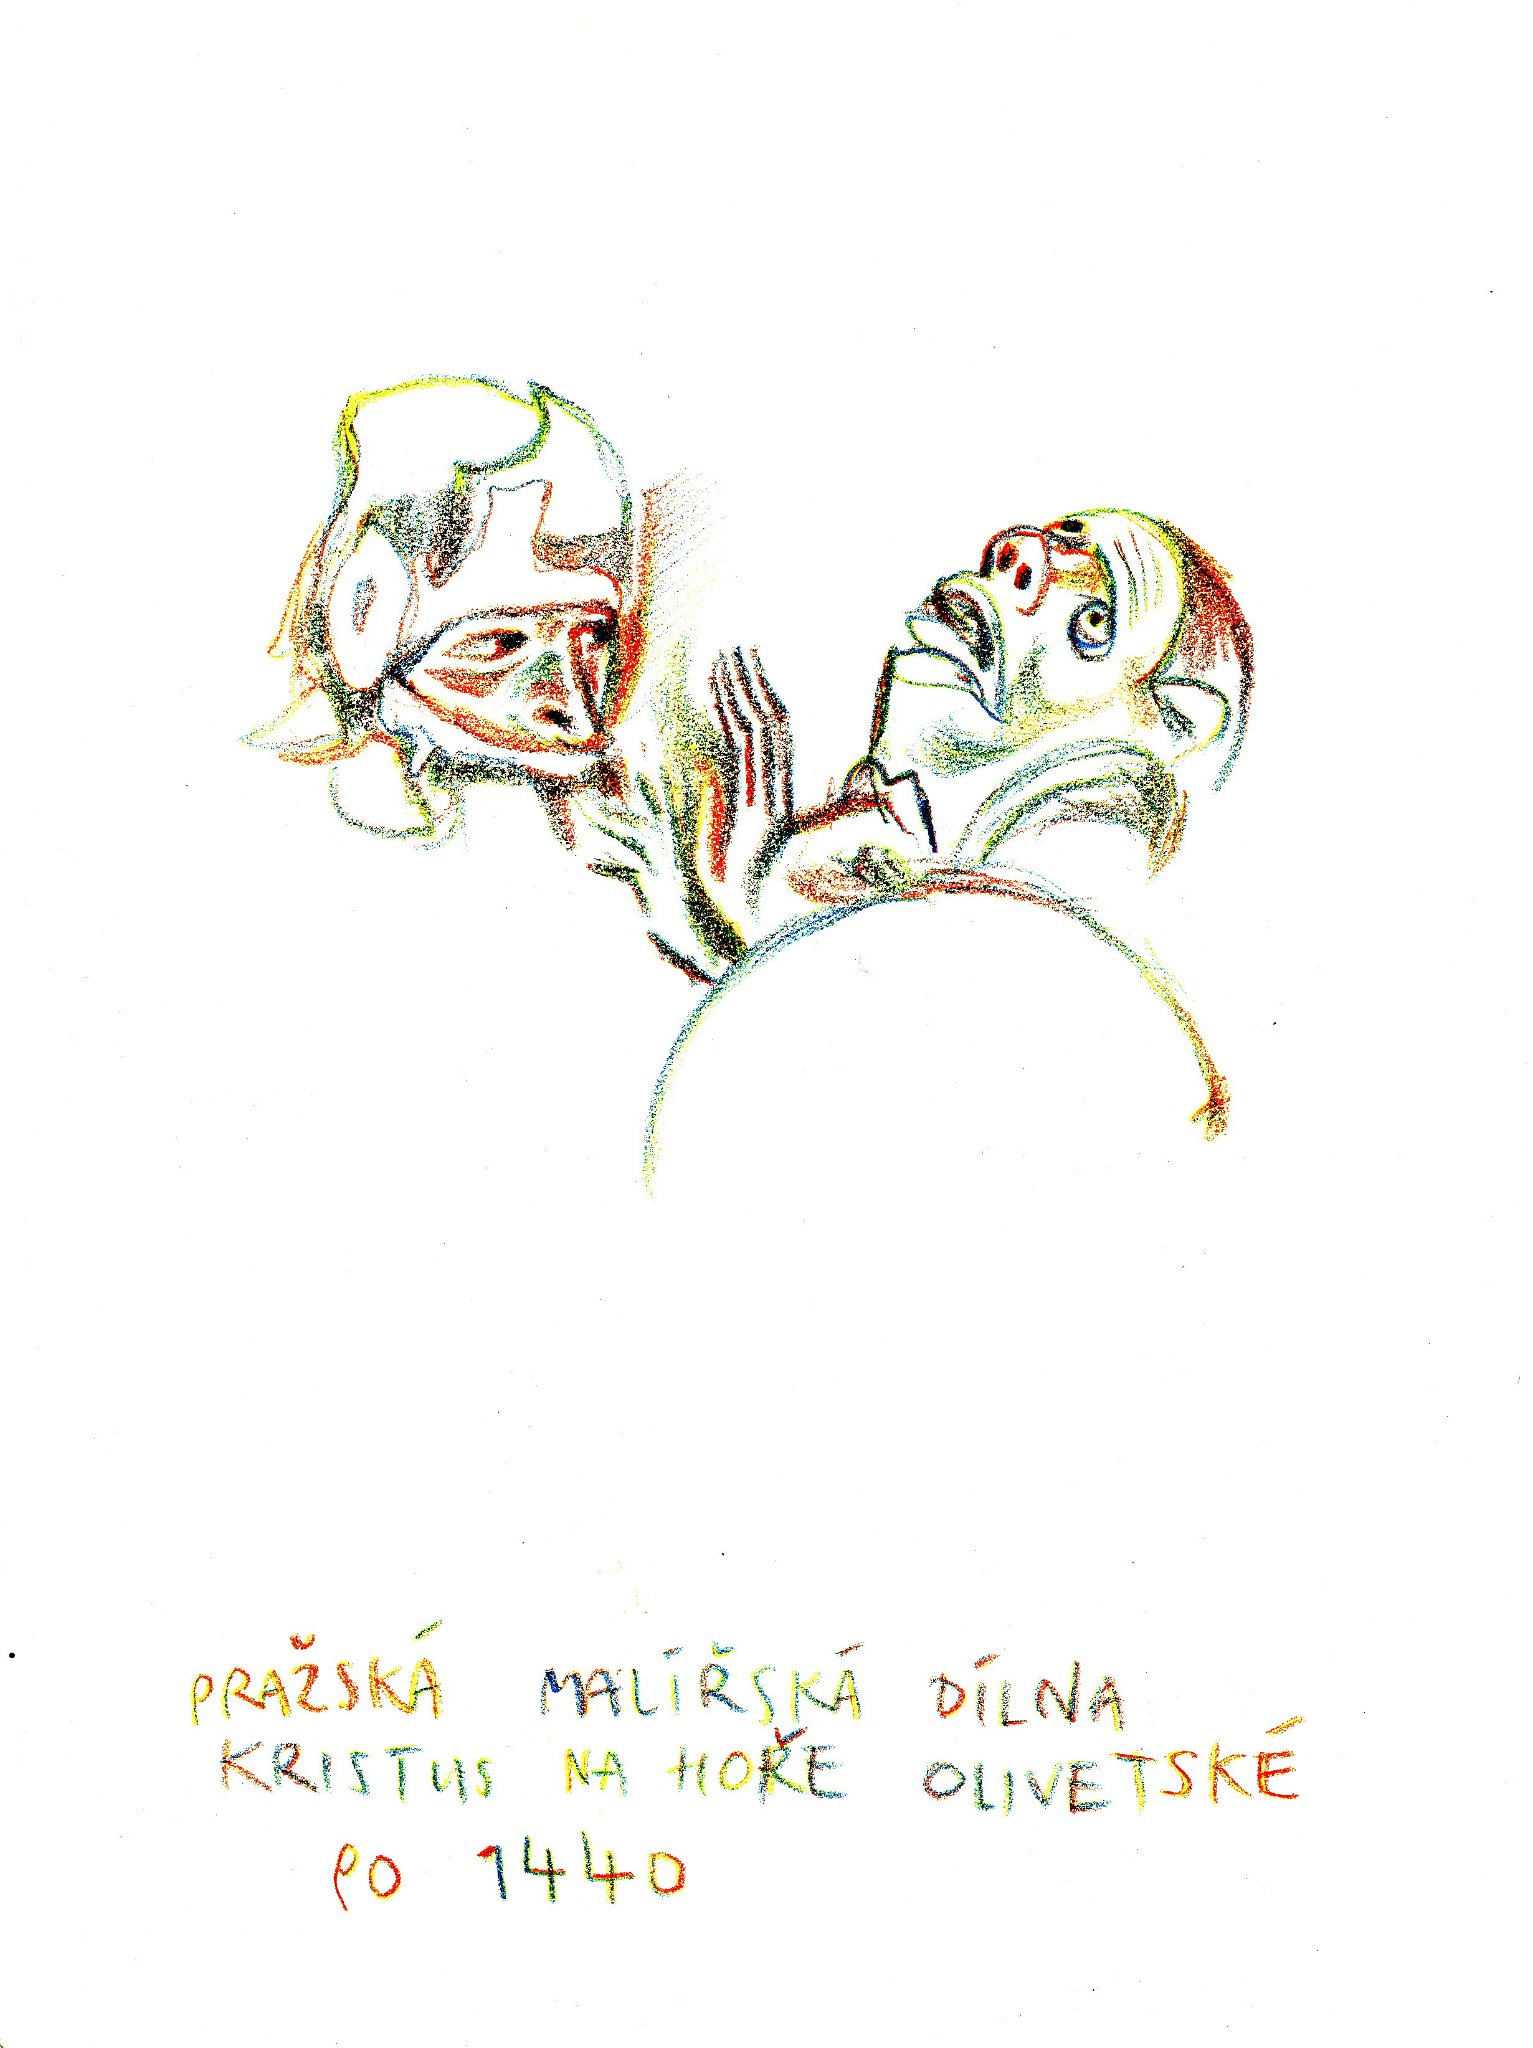 PRAŽSKÁ MALÍŘSKÁ DÍLNA
KRISTUS NA HOŘE OLIVETSKÉ
PO 1440